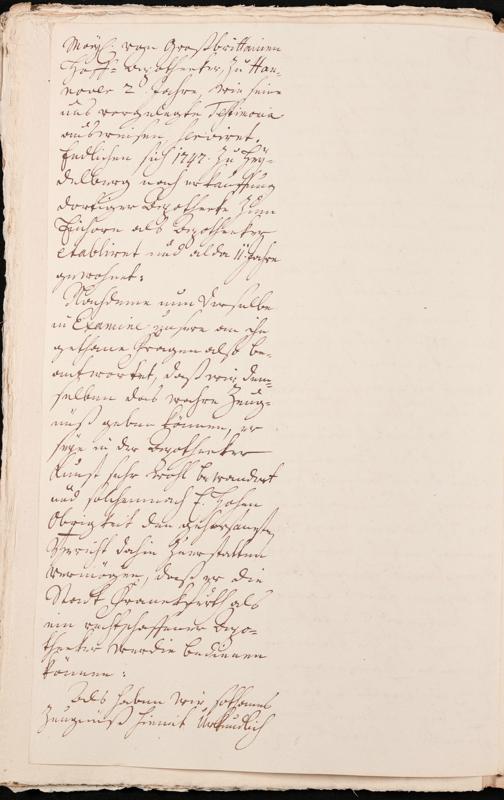 Mayt. von Großbrittainien
Hoff- Apotheeker, zu Han-
nover 2. Jahre, wie seine
uns vorgelegte Testimonia
ausweisen, serviret.
Endlichen sich 1747. zu Hey-
delberg nach erkauffung
dortiger Apotheeke zum
Einhorn als Apotheeker
etabliret und alda 11 Jahre
gewohnet:
Nachdeme nun derselbe
in Examine unsere an ihn
gethane Fragen also be-
antwortet, daß wir dem-
selben das wahre Zeug-
nüß geben können, er
seye in der Apotheeker
Kunst sehr wohl bewandert
und solchemnach E. Hohen
Obrigkeit den gehorsamsten
Bericht dahin zuerstatten
vermögen, daß er die
Stadt Franckfurth als
ein rechtschaffener Apo-
theeker werde bedienen
können:
Als haben wir sothanes
Zeugnüß hiemit Urkundlich